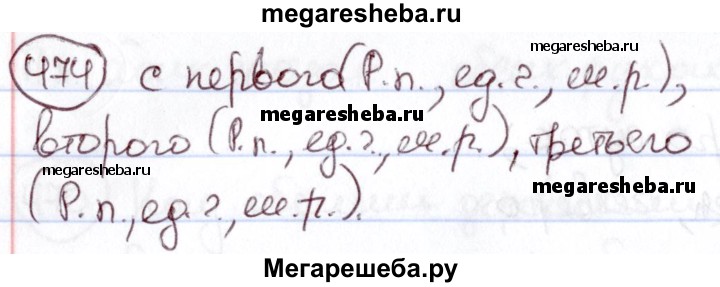 megaresheba.ru
megaresheba.ru
474 с первого (Р.п., ед.ч., м.р.),
megaresheba.ru
второго (Р.п., ед.ч., м.р.), третьего
megaresheba.ru
megaresheba.ru
(Р.п., ед.ч., м.р.).
Мегарешеба.ру